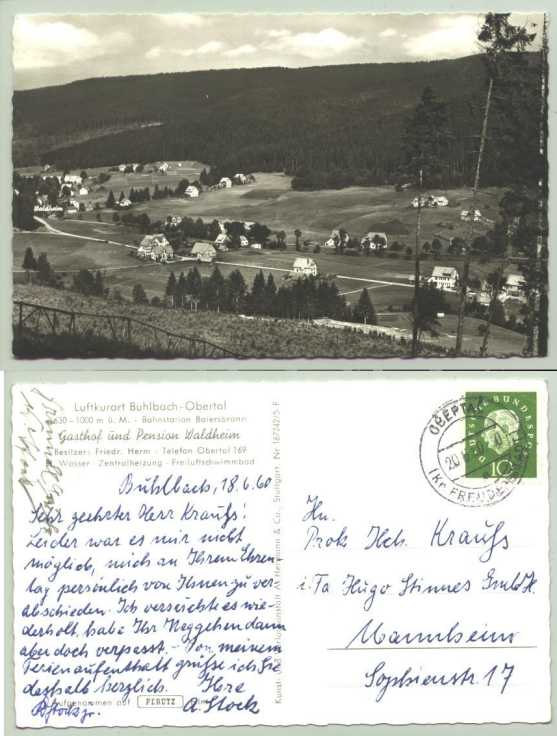 Waldheim
Luftkurort Buhlbach-Obertal
630 - 1000 m ü. M. - Bahnstation Baiersbronn
Gasthof und Pension Waldheim
Besitzer: Friedr. Herm - Telefon Obertal 169
Wasser - Zentralheizung - Freiluftschwimmbad
Buhlbach, 18.6.60
Sehr geehrter Herr Krauß!
Leider war es mir nicht
möglich, mich an Ihrem Ehren-
tag persönlich von Ihnen zu ver-
abschieden. Ich versuchte es wie-
derholt, habe Ihr Weggehen dann
aber doch verpasst. - Von meinem
Ferienaufenthalt grüße ich Sie
deshalb herzlich. Ihre
A. Stock
aufgenommen auf PERUTZ
Stuttgart, Nr. 18742/5 F
DEUTSCHE BUNDESPOST
10
OBERTAL
20.
(Kr. FREUDEN
Hn.
Prok. Hch. Krauß
i. Fa Hugo Stinnes GmbH.
Mannheim
Sophienstr. 17